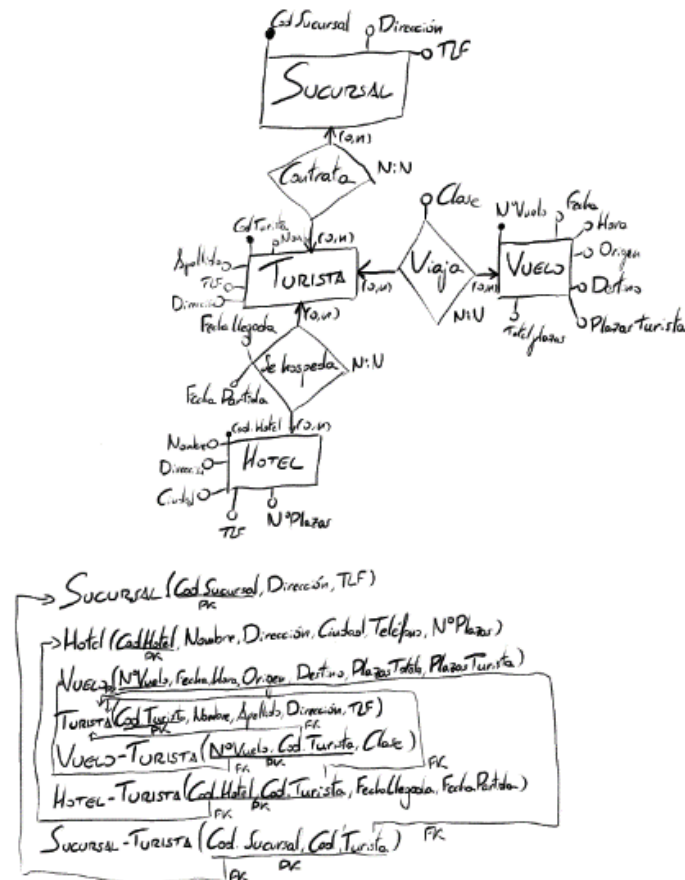 Cod Sucursal
Dirección
TLF
SUCURSAL
(0,n)
Contrata
N:N
(0,n)
Clase
NºVuelo
Fecha
Hora
Origen
Destino
Plazas Turista
Total plazas
VUELO
(0,n)
Viaja
N:N
(0,n)
Cod Turista
Nom
Apellido
TLF
Direcció
TURISTA
(0,n)
Fecha llegada
Se hospeda
N:N
Fecha Partida
(0,n)
Cod. Hotel
Nombre
Direcció
Ciudad
HOTEL
TLF
NºPlazas
SUCURSAL (Cod Sucursal, Dirección, TLF)
PK
Hotel (Cod Hotel, Nombre, Dirección, Ciudad, Teléfono, NºPlazas)
PK
VUELO (NºVuelo, Fecha, Hora, Origen, Destino, Plazas Totals, Plazas Turista)
TURISTA (Cod Turista, Nombre, Apellido, Dirección, TLF)
PK
FK
VUELO-TURISTA (NºVuelo, Cod. Turista, Clase)
FK
PK
FK
HOTEL-TURISTA (Cod. Hotel, Cod. Turista, Fecha llegada, Fecha Partida)
FK
PK
SUCURSAL-TURISTA (Cod. Sucursal, Cod. Turista)
FK
FK
PK